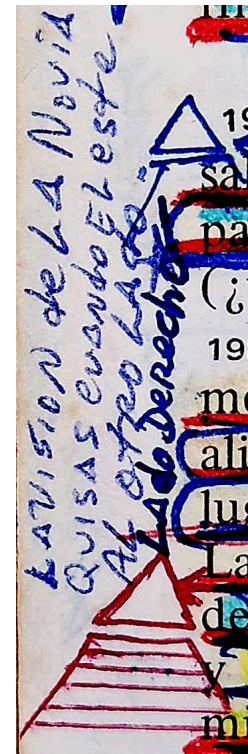 LA VISION de LA NoviA
QUISAS cuando EL este
AL OTRO LADO-
LAdo DeRecho
19
sa
pa
(¿
19
me
ali
lug
La
de
y
mi